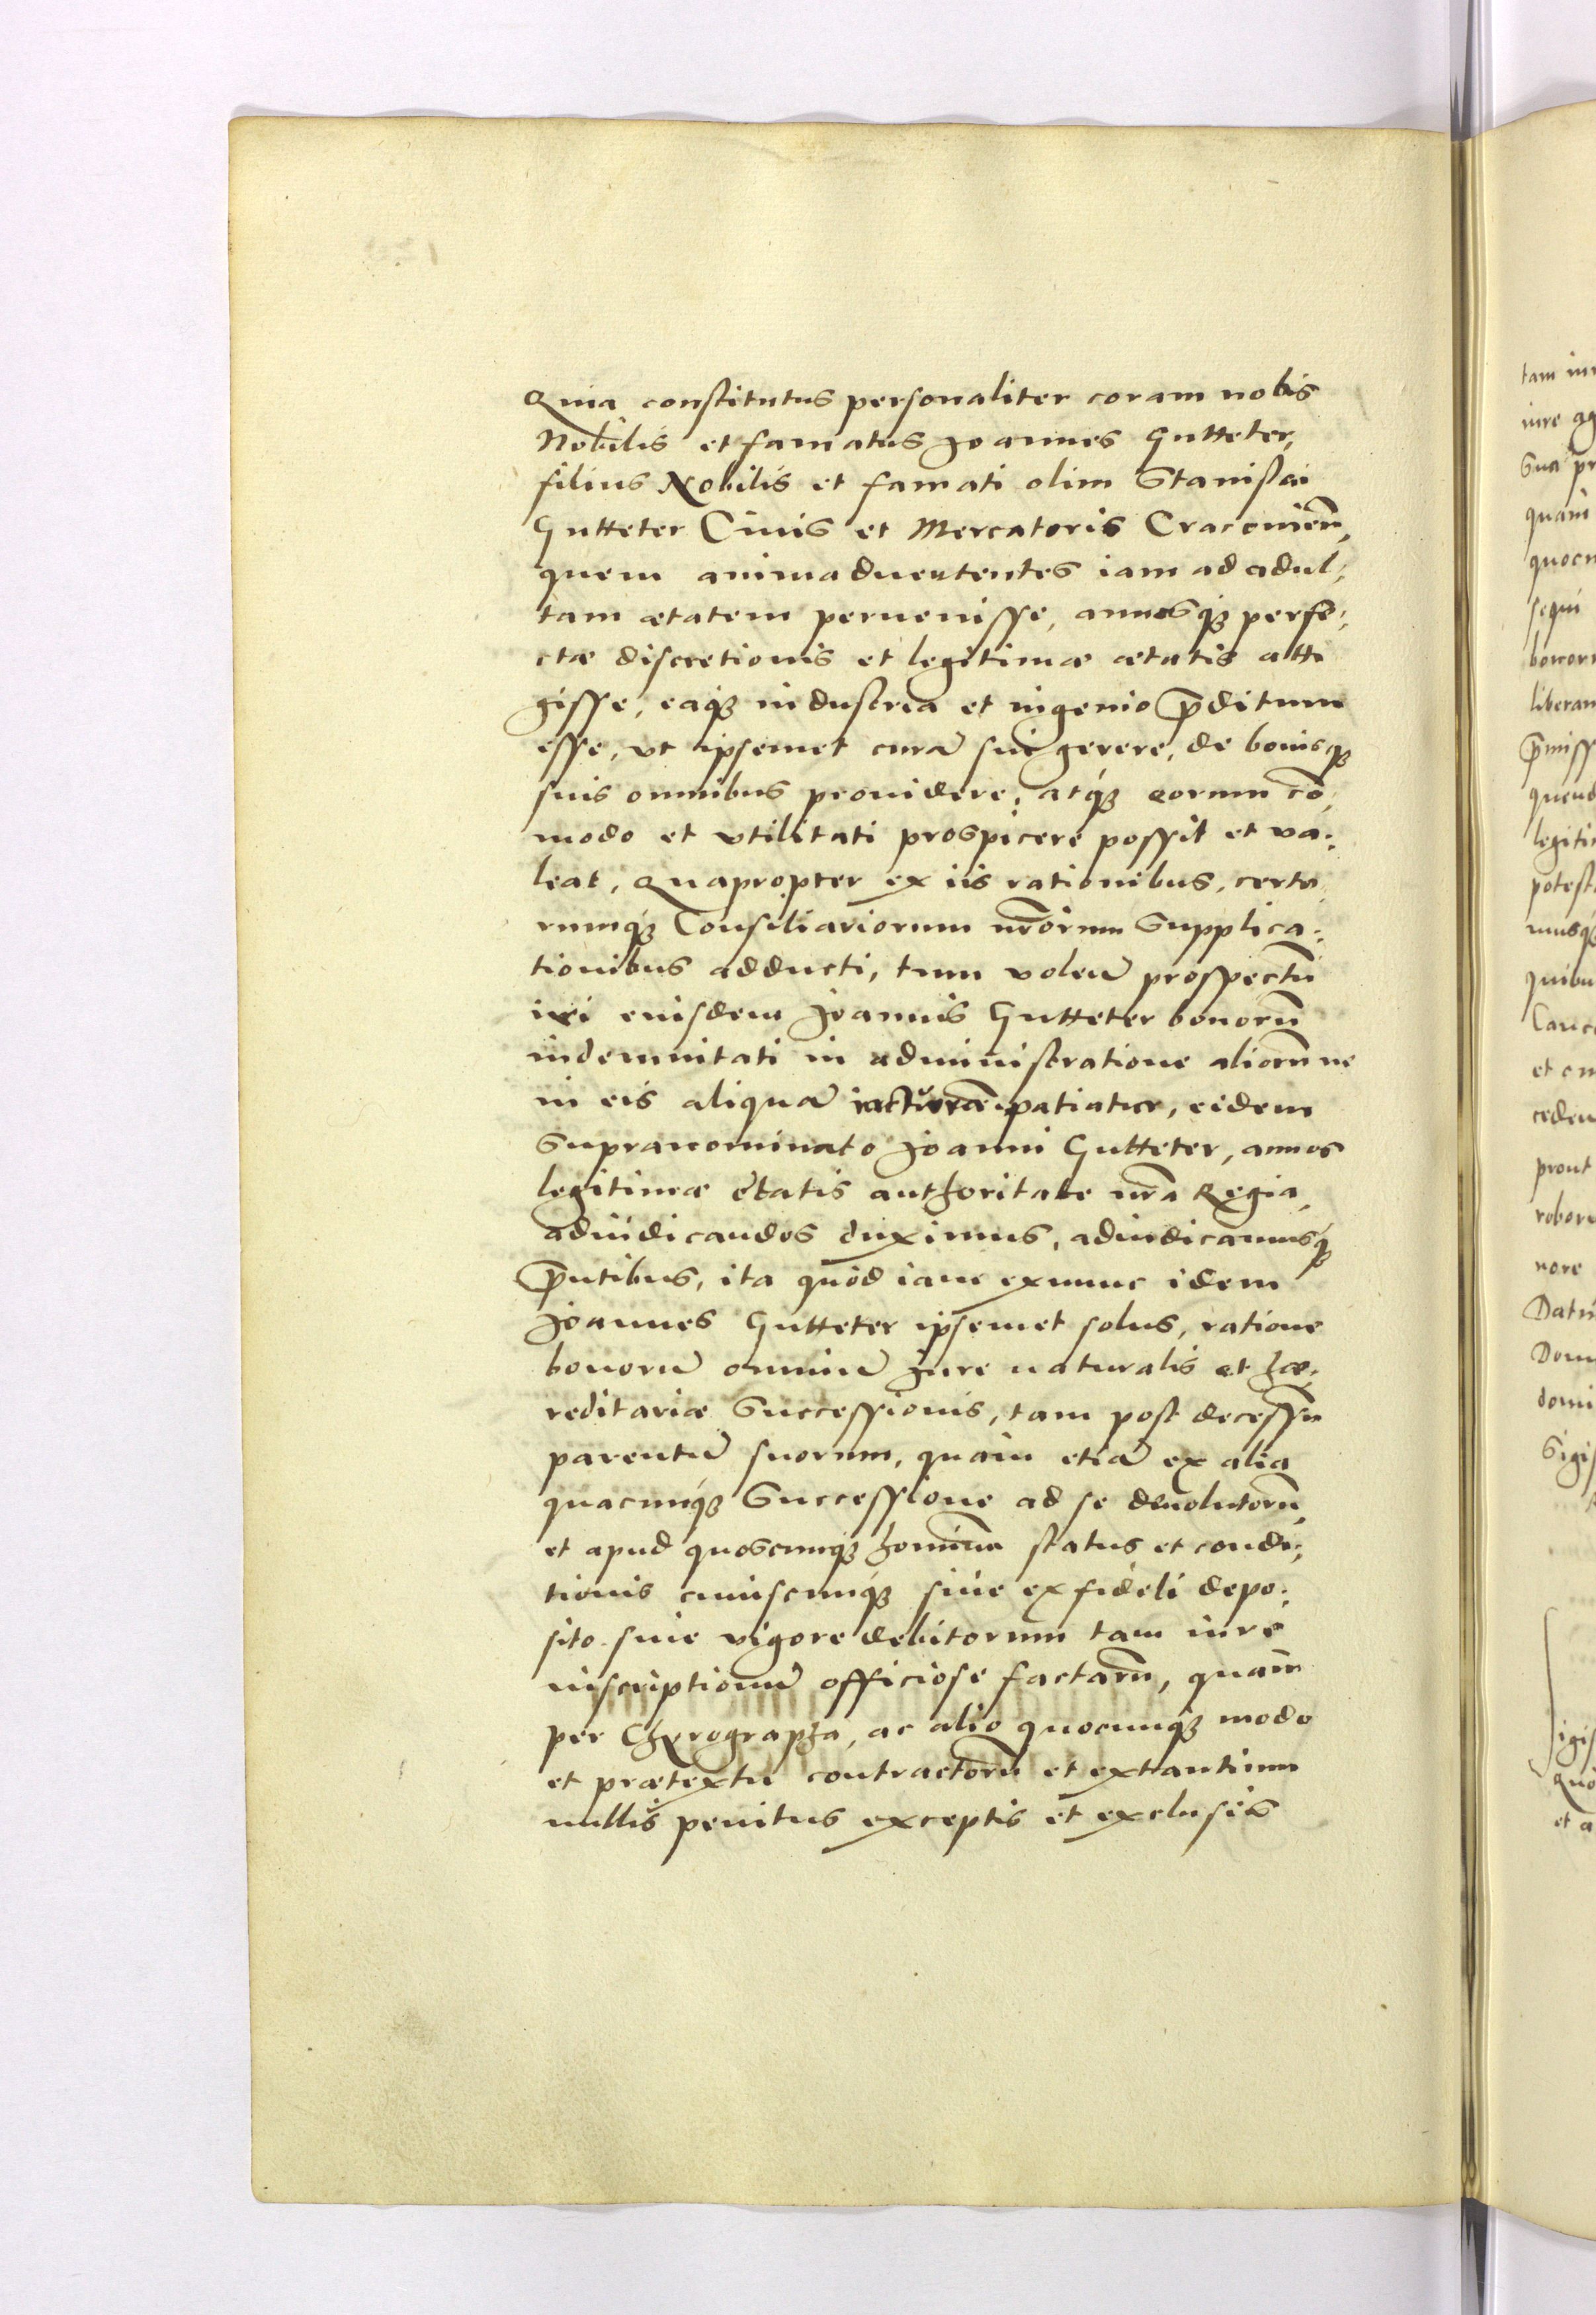 Quia constitutus personaliter coram nobis
Nobilis et famatus Joannes Gutteter,
filius Nobilis et famati olim Stanislai
Gutteter Ciuis et Mercatoris Cracouien̄,
quem animaduertentes iam ad adul:
tam ætatem peruenisse, annosq́ꝫ perfe:
ctæ discretionis et legitimæ ætatis atti
gisse, eaq́ꝫ industria et ingenio p̄ditum
esse, vt ipsemet curā sui gerere, de bonisq́ꝫ
suis omnibus prouidere, atq́ꝫ eorum cō:
modo et vtilitati prospicere possit et va:
leat, Quapropter ex iis rationibus, certo
rumq́ꝫ Consiliariorum nr̄orum Supplica:
tionibus adducti, tum volen̄ prospectū
iri eiusdem Joannis Gutteter bonorū
indemnitati in administratione aliorū ne
in eis aliquā iacturam patiatur, eidem
Supranominato Joanni Gutteter, annos
legitimæ ętatis authoritate nr̄a Regia,
adiudicandos duximus, adiudicamusq́ꝫ
p̄ntibus, ita quod iam exnunc idem
Joannes Gutteter ipsemet solus, ratione
bonorū omniū Jure naturalis et hæ:
reditariæ Successionis, tam post decessū
parentū suorum, quam etiā ex alia
quacunq́ꝫ Successione ad se deuolutorū,
et apud quoscunq́ꝫ hominū status et condi:
tionis cuiuscunq́ꝫ siue ex fideli depo:
sito siue vigore debitorum tam iure
inscriptionū officiose factarū, quam
per Chyrographa, ac alio quocunq́ꝫ modo
et prætextu contractorū et extantium
nullis penitus exceptis et exclusis